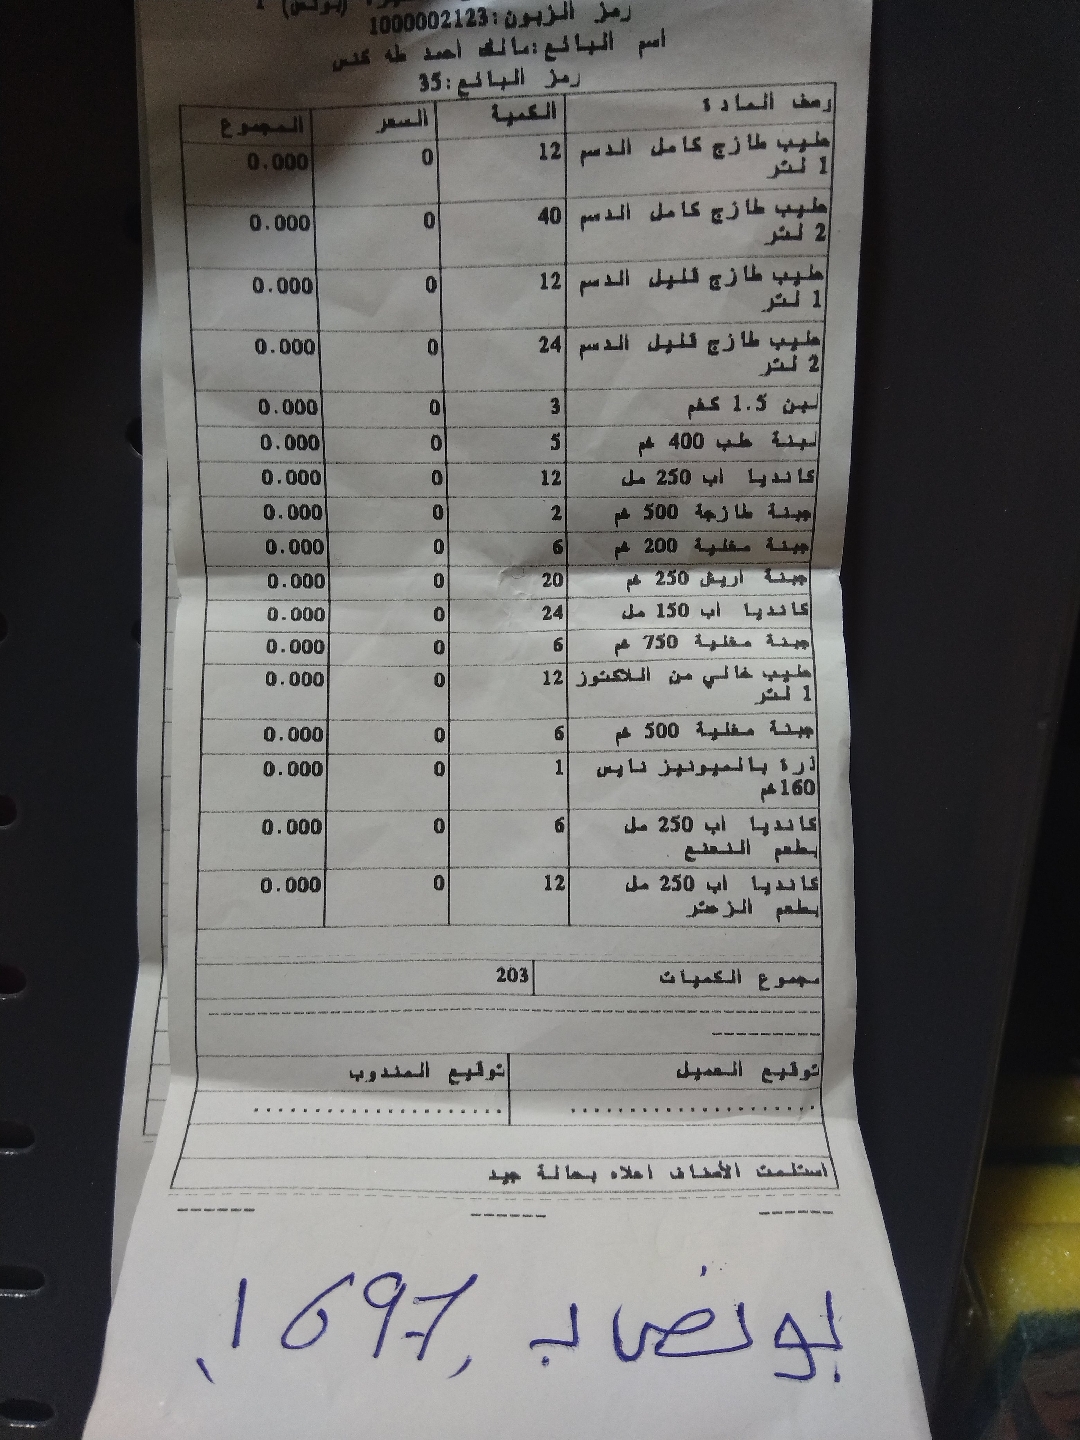 رمز الزبون:1000002123
اسم البائع:مالك احمد طه
رمز البائع:35
وصف المادة الكمية السعر المجموع
حليب طازج كامل الدسم 12 0 0.000
1 لتر
حليب طازج كامل الدسم 40 0 0.000
2 لتر
حليب طازج قليل الدسم 12 0 0.000
1 لتر
حليب طازج قليل الدسم 24 0 0.000
2 لتر
لبن 1.5 كغم 3 0 0.000
لبنة علب 400 غم 5 0 0.000
كانديا اب 250 مل 12 0 0.000
جبنة طازجة 500 غم 2 0 0.000
جبنة مغلية 200 غم 6 0 0.000
جبنة اريش 250 غم 20 0 0.000
كانديا اب 150 مل 24 0 0.000
جبنة مغلية 750 غم 6 0 0.000
حليب خالي من اللاكتوز 12 0 0.000
1 لتر
جبنة مغلية 500 غم 6 0 0.000
ذرة بالميونيز نايس 1 0 0.000
160غم
كانديا اب 250 مل 6 0 0.000
بطعم النعنع
كانديا اب 250 مل 12 0 0.000
بطعم الزعتر
مجموع الكميات 203
توقيع العميل توقيع المندوب
استلمت الأصناف اعلاه بحالة جيد
1697